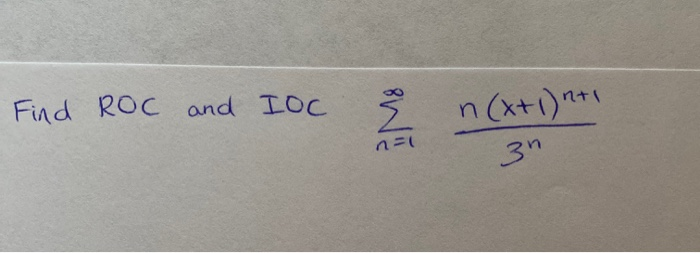 Find ROC and IOC \sum_{n=1}^{\infty} \frac{n(x+1)^{n+1}}{3^n}